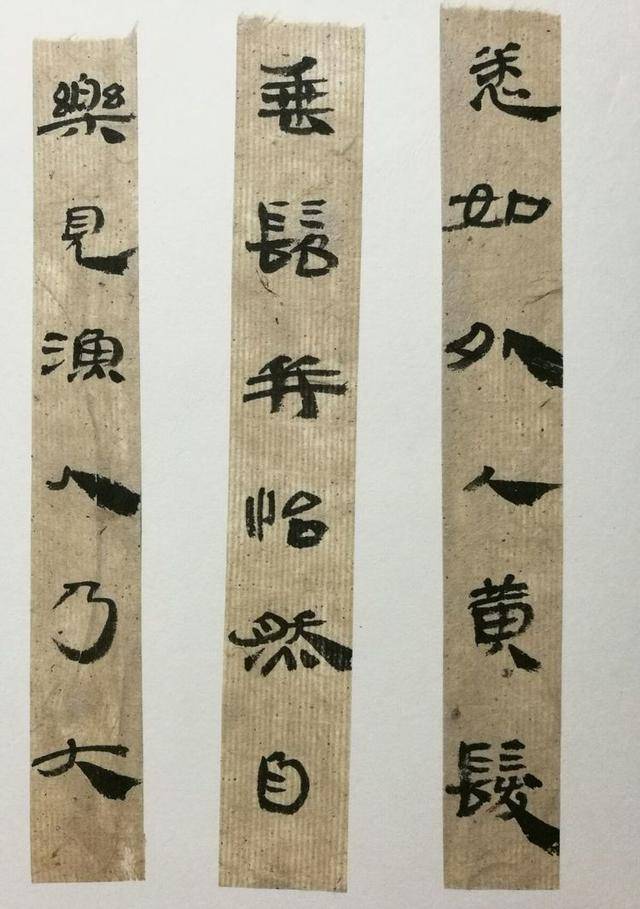 悉如外人黄髮
垂髫并怡然自
樂見漁人乃大